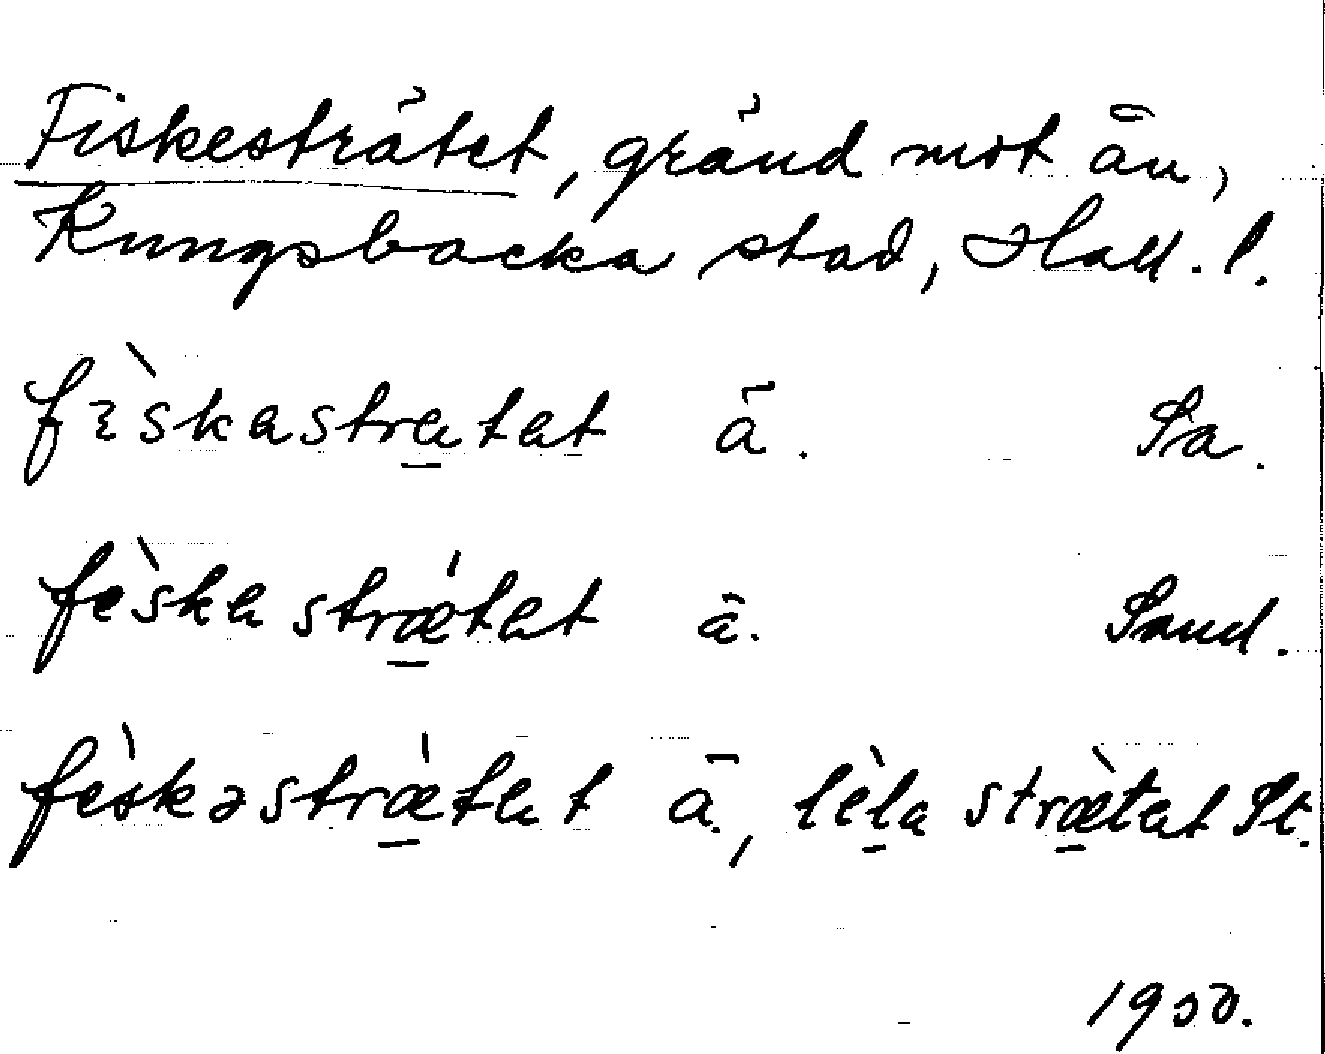 Fiskesträtet, gränd mot ån,
Kungsbacka stad, Hall. l.
fìskastrætat ā. Sa.
fèska strǽtat ā. Sand.
fèskəstrǽtat ā., lèla strætat St.
1930.